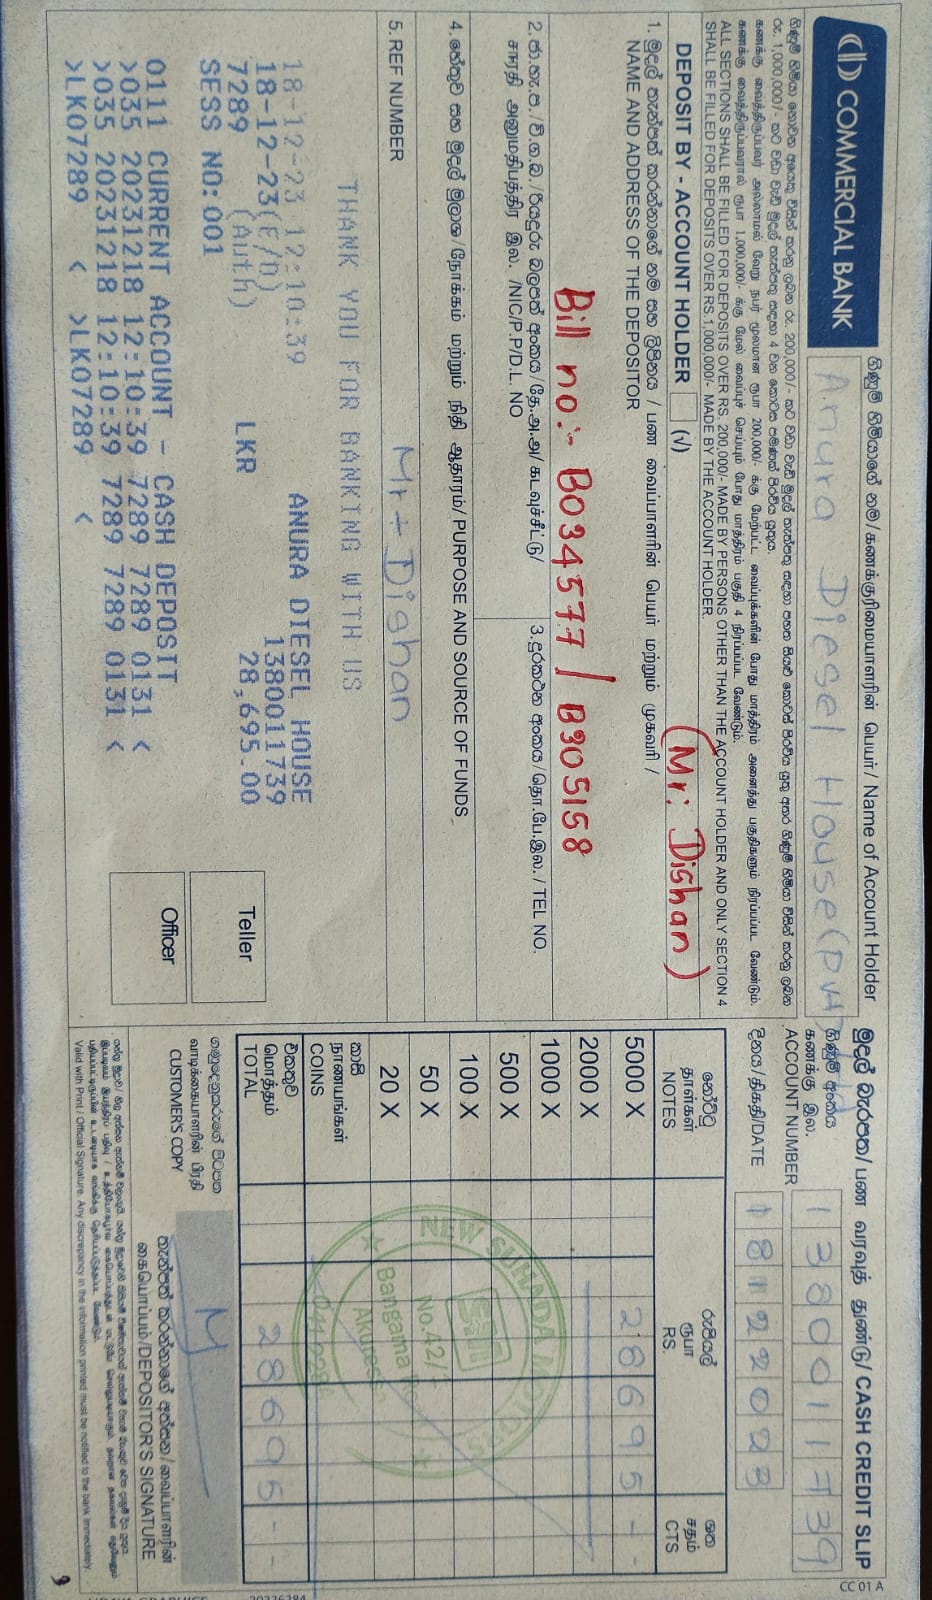 COMMERCIAL BANK
ගිණුම් හිමියාගේ නම/கணக்குரிமையாளரின் பெயர்/ Name of Account Holder
Anura Diesel House (pvt)
මුදල් බැරපත/பண வரவுத் துண்டு/ CASH CREDIT SLIP
ගිණුම් අංකය
கணக்கு இல.
ACCOUNT NUMBER
1380011739
දිනය/திகதி/DATE
18122023
ALL SECTIONS SHALL BE FILLED FOR DEPOSITS OVER RS. 200,000/- MADE BY PERSONS OTHER THAN THE ACCOUNT HOLDER AND ONLY SECTION 4
SHALL BE FILLED FOR DEPOSITS OVER RS.1,000,000/- MADE BY THE ACCOUNT HOLDER.
DEPOSIT BY - ACCOUNT HOLDER (√)
(Mr: Dishan)
1. මුදල් තැන්පත් කරන්නාගේ නම සහ ලිපිනය / பண வைப்பாளரின் பெயர் மற்றும் முகவரி /
NAME AND ADDRESS OF THE DEPOSITOR
Bill no:- B034577 / B905158
3. දුරකථන අංකය/தொ.பே.இல. / TEL NO.
/NIC/P.P/D.L. NO
4. හේතුව සහ මුදල් මූලාශ්‍ර/நோக்கம் மற்றும் நிதி ஆதாரம்/ PURPOSE AND SOURCE OF FUNDS
Mr Dishan
5. REF NUMBER
THANK YOU FOR BANKING WITH US
18-12-23 12:10:39 ANURA DIESEL HOUSE
18-12-23(E/D) 1380011739
7289 (Auth) LKR 28,695.00
SESS NO:001
0111 CURRENT ACCOUNT - CASH DEPOSIT
>035 20231218 12:10:39 7289 7289 0131 <
>035 20231218 12:10:39 7289 7289 0131 <
>LK07289 < >LK07289 <
Teller
Officer
නෝට්ටු
தாள்கள்
NOTES
රුපියල්
ரூபா
RS.
ශත
சதம்
CTS
5000 X 28695 - -
2000 X
1000 X
500 X
100 X
50 X
20 X
කාසි
நாணயங்கள்
COINS
එකතුව
மொத்தம்
TOTAL
28695 - -
ගනුදෙනුකරුගේ පිටපත
வாடிக்கையாளரின் பிரதி
CUSTOMER'S COPY
තැන්පත් කරන්නාගේ අත්සන/வைப்பாளரின்
கையொப்பம்/DEPOSITOR'S SIGNATURE
Valid with Print / Official Signature. Any discrepancy in the information printed must be notified to the bank immediately.
CC 01 A